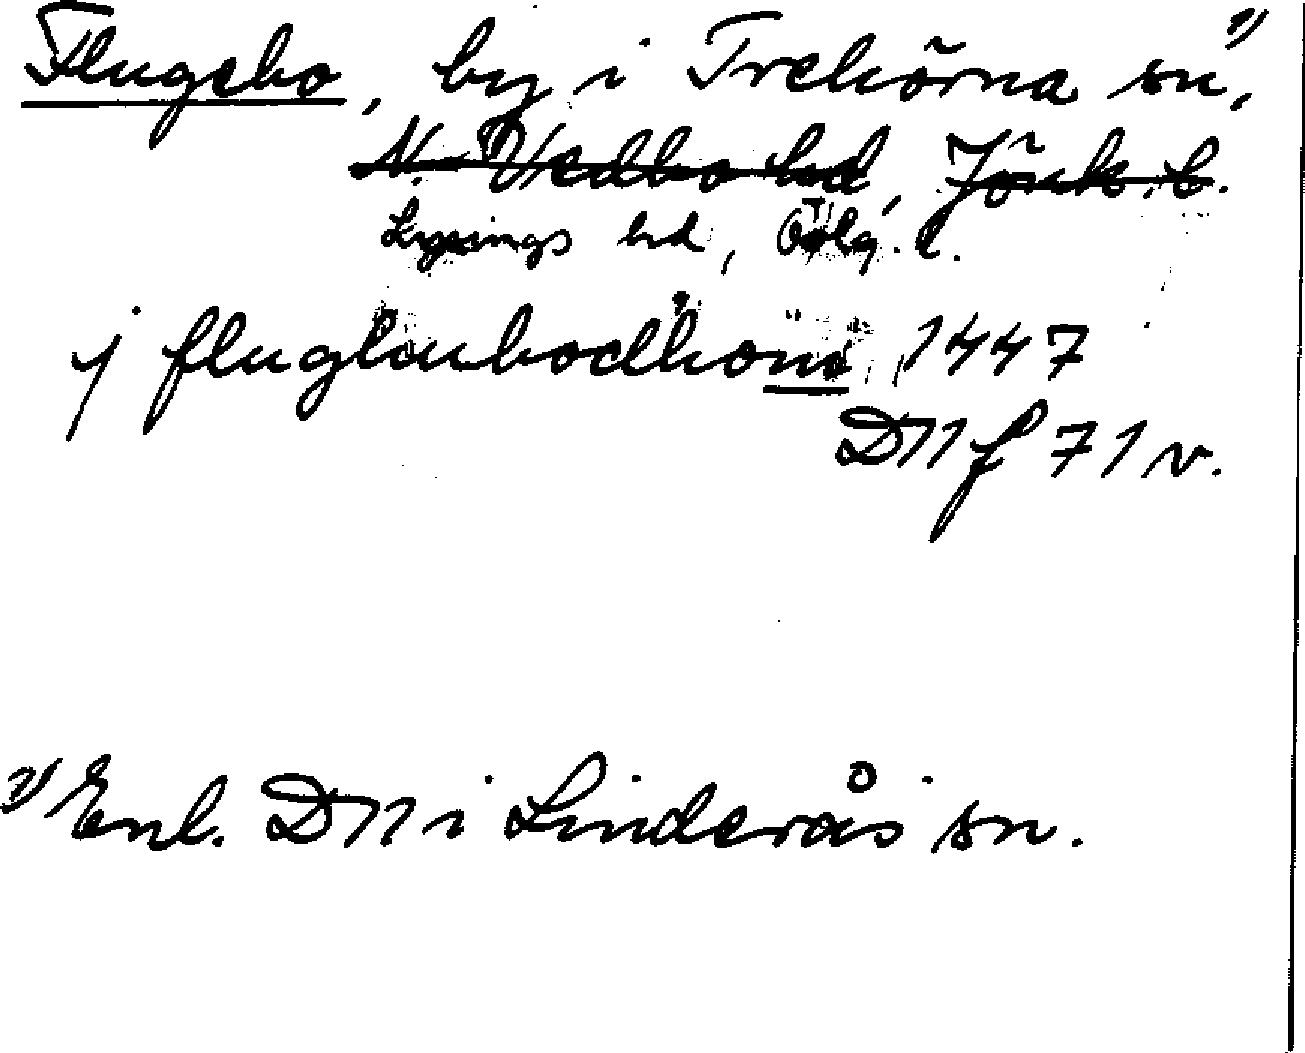 Flugebo, by i Trehörna sn¹⁾,
N. Vedbo hd, Jönk. l.
Lysings hd, Östg. l.
j fluglaubodhom 1447
DN f 71 v.
¹⁾ Enl. DN i Linderås sn.